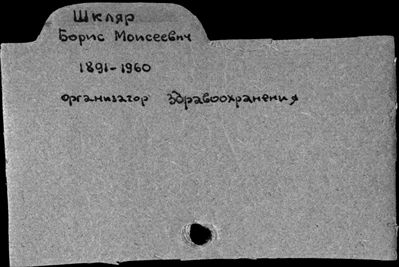 Шкляр
Борис Моисеевич
1891-1960
организатор здравоохранения